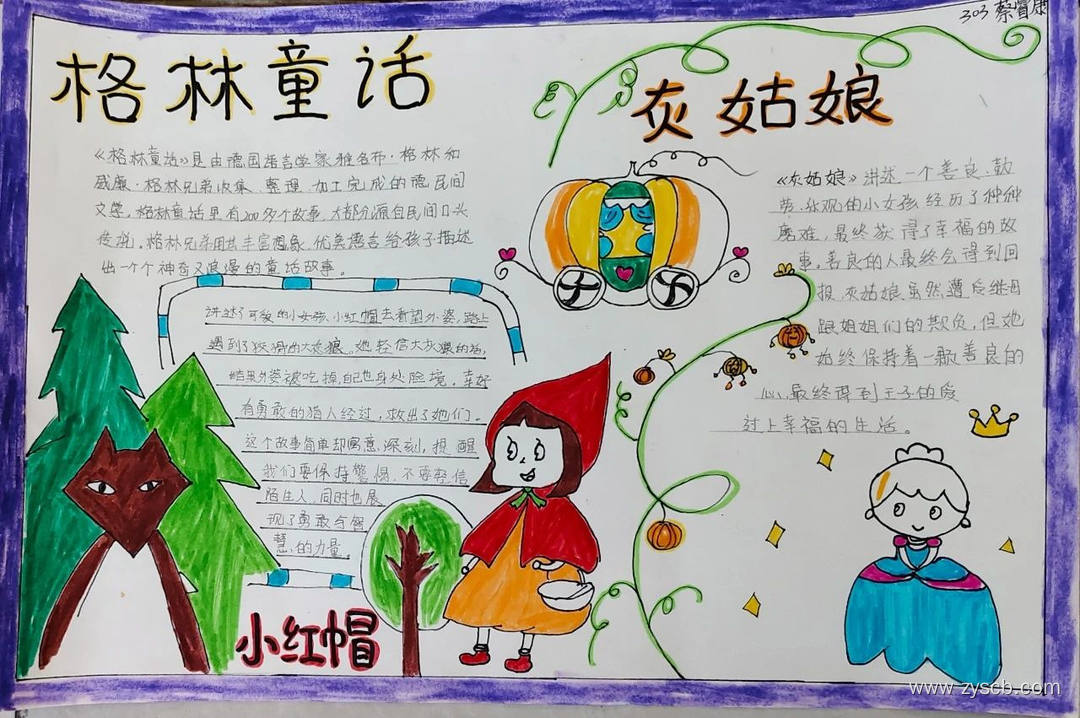 303 蔡
格林童话
《格林童话》是由德国语言学家雅各布·格林和
威廉·格林兄弟收集、整理、加工完成的德民间
文学。格林童话里有200多个故事，大部分源自民间口头
传说。格林兄弟用其丰富想象、优美语言给孩子描述
出一个个神奇又浪漫的童话故事。
讲述了可爱的小女孩、小红帽去看望外婆，路上
遇到了狡猾的大灰狼。她轻信大灰狼的话，
结果外婆被吃掉，自己也身处险境。幸好
有勇敢的猎人经过，救出了她们。
这个故事简单却寓意深刻，提醒
我们要保持警惕，不要轻信
陌生人，同时也展
现了勇敢与智
慧的力量。
小红帽
灰姑娘
《灰姑娘》讲述一个善良、勤
劳、乐观的小女孩经历了种种
磨难，最终获得了幸福的故
事。善良的人最终会得到回
报，灰姑娘虽然遭后继母
跟姐姐们的欺负，但她
始终保持着一颗善良的
心，最终得到王子的爱
过上幸福的生活。
www.zyscb.com